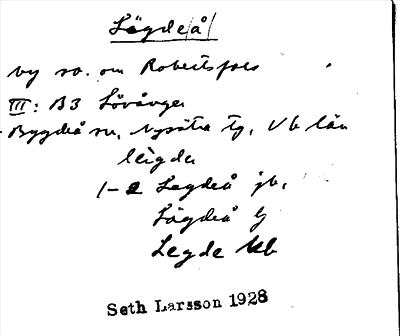 Lögdeå
by so. om Robertsfors
III: B3 Lövånger
Bygdeå sn, Nysätra tg, Vb län
lεigda
1-2 Legdeå jb,
Lögdeå G
Legde kb
Seth Larsson 1928